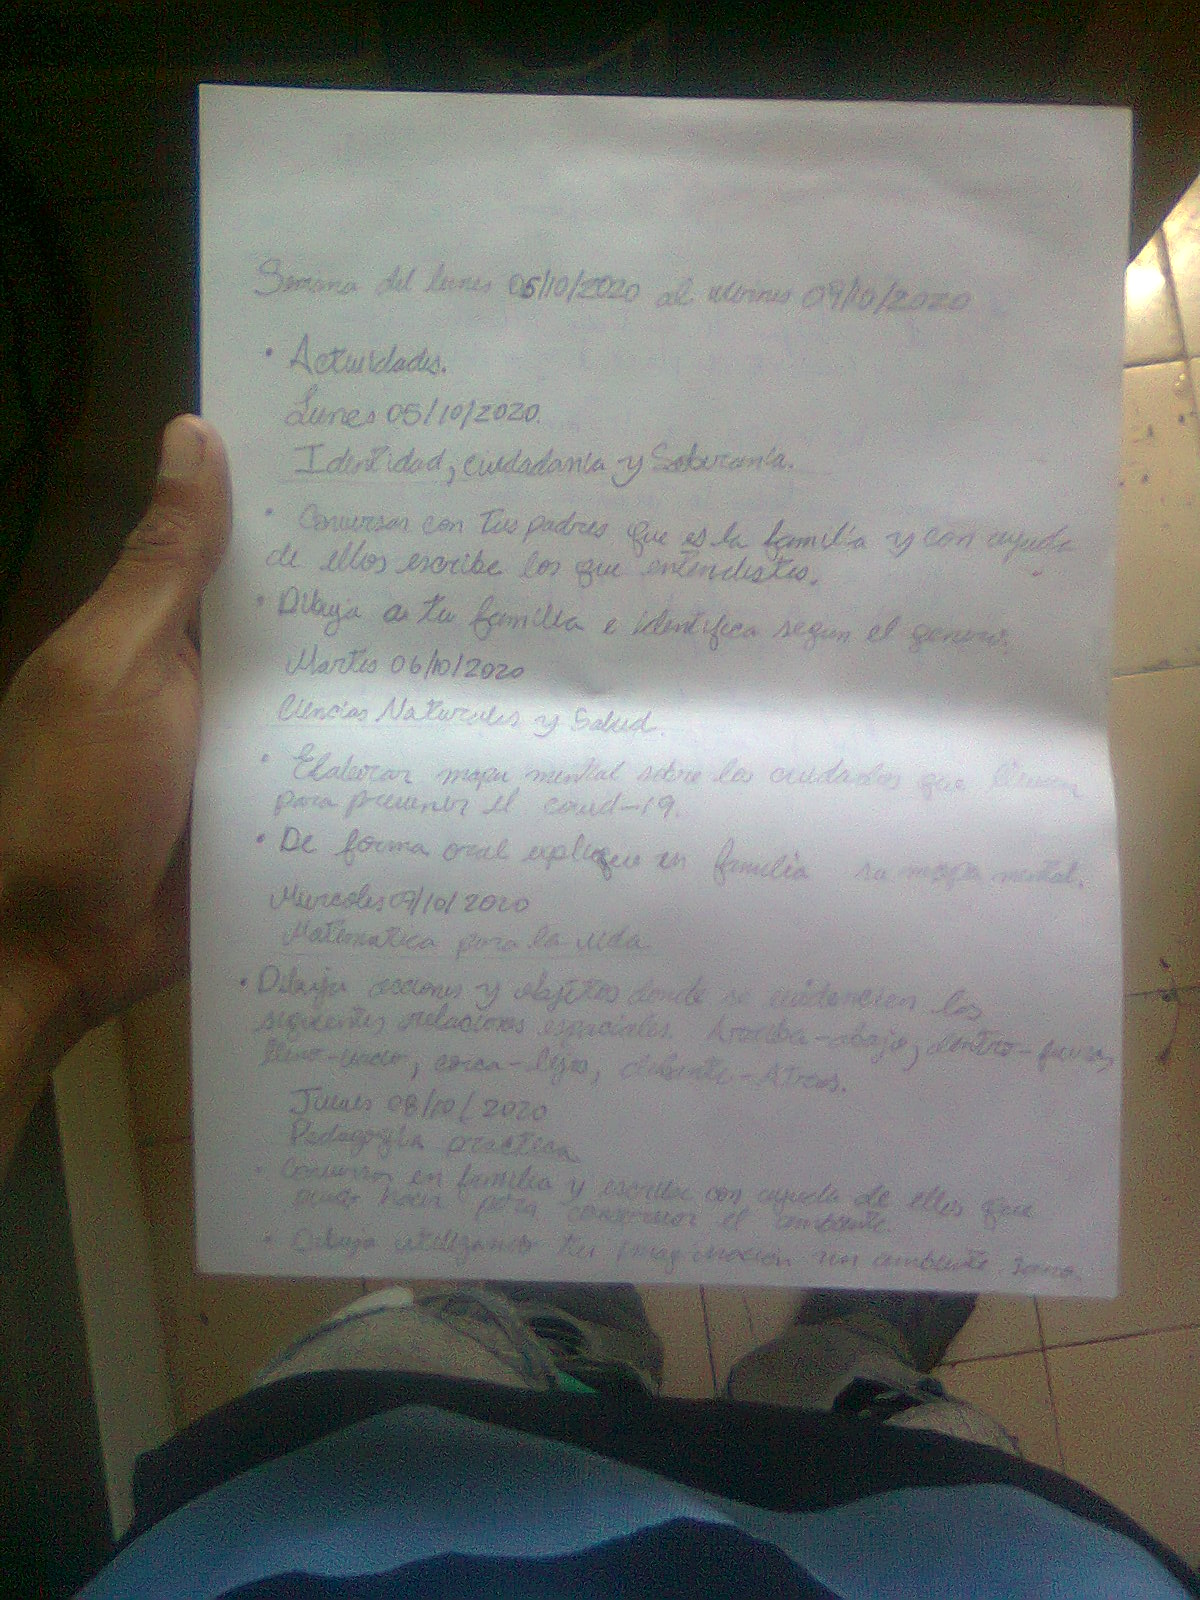 Semana del lunes 05/10/2020 al viernes 09/10/2020
• Actividades.
Lunes 05/10/2020.
Identidad, ciudadania y Soberania.
• Conversar con tus padres que es la familia y con ayuda
de ellos escribe los que entendistes.
• Dibuja a tu familia e identifica segun el genero.
Martes 06/10/2020
Ciencias Naturales y Salud.
• Elaborar mapa mental sobre los cuidados que
para prevenir el covid-19.
• De forma oral explique en familia su mapa mental.
Miercoles 07/10/2020
Matematica para la vida
• Dibuja acciones y objetos donde se evidencien las
siguientes relaciones espaciales. Arriba-abajo, dentro-fuera,
lleno-vacio, cerca-lejos, delante-Atras.
Jueves 08/10/2020
Pedagogia practica
• Conversar en familia y escribe con ayuda de ellos que
hacer para conservar el ambiente.
• Dibuja utilizando tu imaginación un ambiente sano.